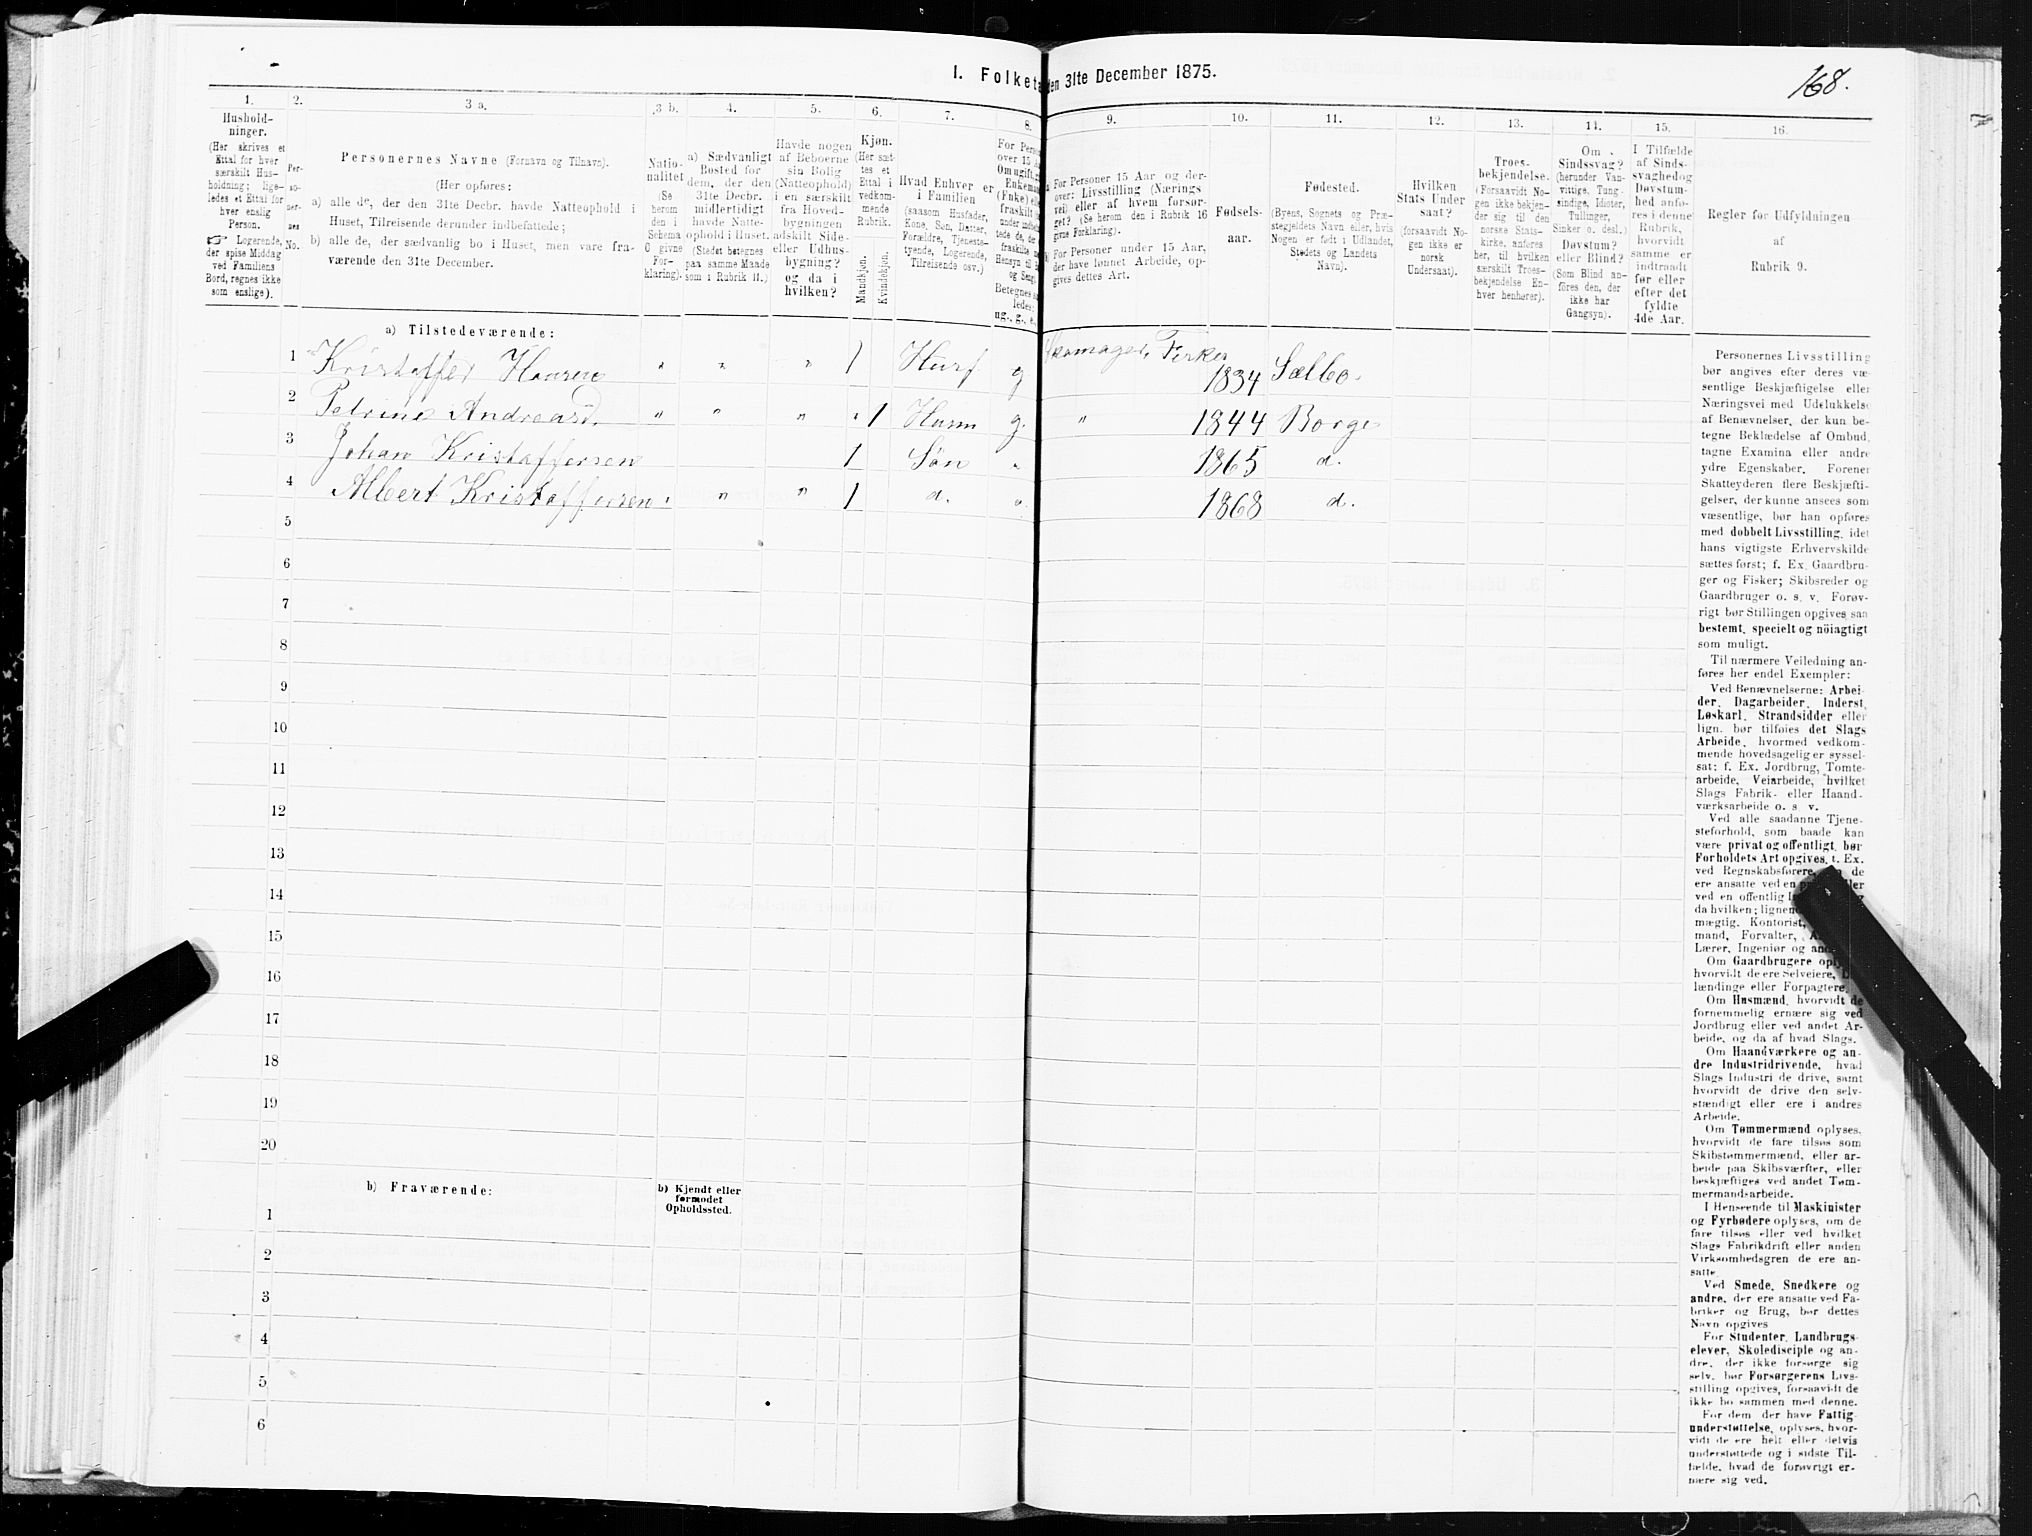 I. Folketæ
den 31te December 1875.
168.
1.
Hushold-
ninger.
(Her skrives et
Ettal for hver
særskilt Hus-
holdning; lige-
ledes et Ettal for
hver enslig
Person.
☞ Logerende,
der spise Middag
ved Familiens
Bord, regnes ikke
som enslige).
2.
Per-
so-
ner-
nes
No.
3 a.
Personernes Navne (Fornavn og Tilnavn).
(Her opføres:
a) alle de, der den 31te Decbr. havde Natteophold i
Huset, Tilreisende derunder indbefattede;
b) alle de, der sædvanlig bo i Huset, men vare fra-
værende den 31te December.
3 b.
Natio-
nalitet
(Se
herom
den i
Schema
O givne
For-
klaring).
4.
a) Sædvanligt
Bosted for
dem, der den
31te Decbr.
midlertidigt
havde Natte-
ophold i Huset.
(Stedet betegnes
paa samme Maade
som i Rubrik 11.)
5.
Havde nogen
af Beboerne
sin Bolig
(Natteophold)
i en særskilt
fra Hoved-
bygningen
adskilt Side-
eller Udhus-
bygning?
og da i
hvilken?
6.
Kjøn.
(Her sæt-
tes et
Ettal i
vedkom-
mende
Rubrik.
Mandkjøn.
Kvindekjøn.
7.
Hvad Enhver er
i Familien
(saasom Husfader,
Kone, Søn, Datter,
Forældre, Tjeneste-
tyende, Logerende,
Tilreisende osv.)
8.
For Perso
over 15 A
Om ugift, g
Enkeman
(Enke) elle
fraskilt
Betegnes s
ledes:
ug., g., e.,
9.
a) For Personer 15 Aar og der-
over: Livsstilling (Nærings
vei) eller af hvem forsør-
get? (Se herom den i Rubrik 16
givne Forklaring).
b) For Personer under 15 Aar,
der have lønnet Arbeide, op-
gives dettes Art.
10.
Fødsels-
aar.
11.
Fødested.
(Byens, Sognets og Præ-
stegjeldets Navn eller, hvis
Nogen er født i Udlandet,
Stedets og Landets
Navn).
12.
Hvilken
Stats Under
saat?
(forsaavidt No-
gen ikke er
norsk
Undersaat).
13.
Troes-
bekjendelse.
(Forsaavidt No-
gen ikke bekjen-
der sig til den
norske Stats-
kirke, anføres
her, til hvilken
særskilt Troes-
bekjendelse En-
hver henhører).
14.
Om
Sindssvag?
(herunder Van-
vittige, Tung-
sindige, Idioter,
Tullinger,
Sinker o. desl.)
Døvstum?
eller Blind?
(Som Blind an-
føres den, der
ikke har
Gangsyn).
15.
I Tilfælde
af Sinds-
svaghed og
Døvstum-
hed anfø-
res i denne
Rubrik,
hvorvidt
samme er
indtraadt
før eller
efter det
fyldte
4de Aar.
16.
Regler for Udfyldningen
af
Rubrik 9.
a) Tilstedeværende:
1 Kristaffer Hansen " " " 1 Husf g Skomager, Fisker 1834 Sælbo.
2 Petrine Andreasd. " " " " 1 Husm g. " 1844 Borge
3 Johan Kristaffersen 1 Søn " 1865 d.
4 Albert Kristaffersen " " " 1 d. " 1868 d.
5
6
7
8
9
10
11
12
13
14
15
16
17
18
19
20
b) Fraværende:
b) Kjendt eller
formodet
Opholdssted.
1
2
3
4
5
6
Personernes Livsstilling
bør angives efter deres væ
sentlige Beskjæftigelse eller
Næringsvei med Udelukkelse
af Benævnelser, der kun be-
tegne Beklædelse af Ombud,
tagne Examina eller andre
ydre Egenskaber. Forener
Skatteyderen flere Beskjæfti-
gelser, der kunne ansees som
væsentlige, bør han opføres
med dobbelt Livsstilling, idet
hans vigtigste Erhvervskilde
sættes først; f. Ex. Gaardbru-
ger og Fisker; Skibsreder og
Gaardbruger o. s. v. Forøv-
rigt bør Stillingen opgives saa
bestemt, specielt og nøiagtigt
som muligt.
Til nærmere Veiledning an-
føres her endel Exempler:
Ved Benævnelserne: Arbei-
der, Dagarbeider, Inderst,
Løskarl, Strandsidder eller
lign. bør tilføies det Slags
Arbeide, hvormed vedkom-
mende hovedsagelig er syssel-
sat: f. Ex. Jordbrug, Tomte-
arbeide, Veiarbeide, hvilket
Slags Fabrik- eller Haand-
værksarbeide o. s. v.
Ved alle saadanne Tjene-
steforhold, som baade kan
være privat og offentligt, bør
Forholdets Art opgives, t. Ex.
ved Regnskabsførere, de
ere ansatte ved en
ved en offentlig
da hvilken;
mægtig, Kontorist,
mand, Forvalter,
Lærer, Ingeniør og
Om Gaardbrugere
hvorvidt de ere Selveiere,
lændinge eller Forpagtere.
Om Husmænd, hvorvidt de
fornemmelig ernære sig ved
Jordbrug eller ved andet Ar-
beide, og da af hvad Slags.
Om Haandværkere og an-
dre Industridrivende, hvad
Slags Industri de drive, samt
hvorvidt de drive den selv-
stændigt eller ere i andres
Arbeide.
Om Tømmermænd oplyses,
hvorvidt de fare tilsøs som
Skibstømmermænd, eller ar-
beide paa Skibsværfter, eller
beskjæftiges ved andet Tøm-
mermandsarbeide.
I Henseende til Maskinister
og Fyrbødere oplyses, om de
fare tilsøs eller ved hvilket
Slags Fabrikdrift eller anden
Virksomhedsgren de ere an-
satte.
Ved Smede, Snedkere og
andre, der ere ansatte ved Fa-
briker og Brug, bør dettes
Navn opgives
For Studenter, Landbrugs-
elever, Skoledisciple og an-
dre, der ikke forsørge sig
selv, bør Forsørgerens Livs-
stilling opgives, forsaavidt de
ikke bo sammen med denne.
For dem, der have Fattig-
understøttelse, oplyses, hvor-
vidt de ere helt eller delvis
understøttede og i sidste Til-
fælde, hvad de forøvrigt er-
nære sig ved.